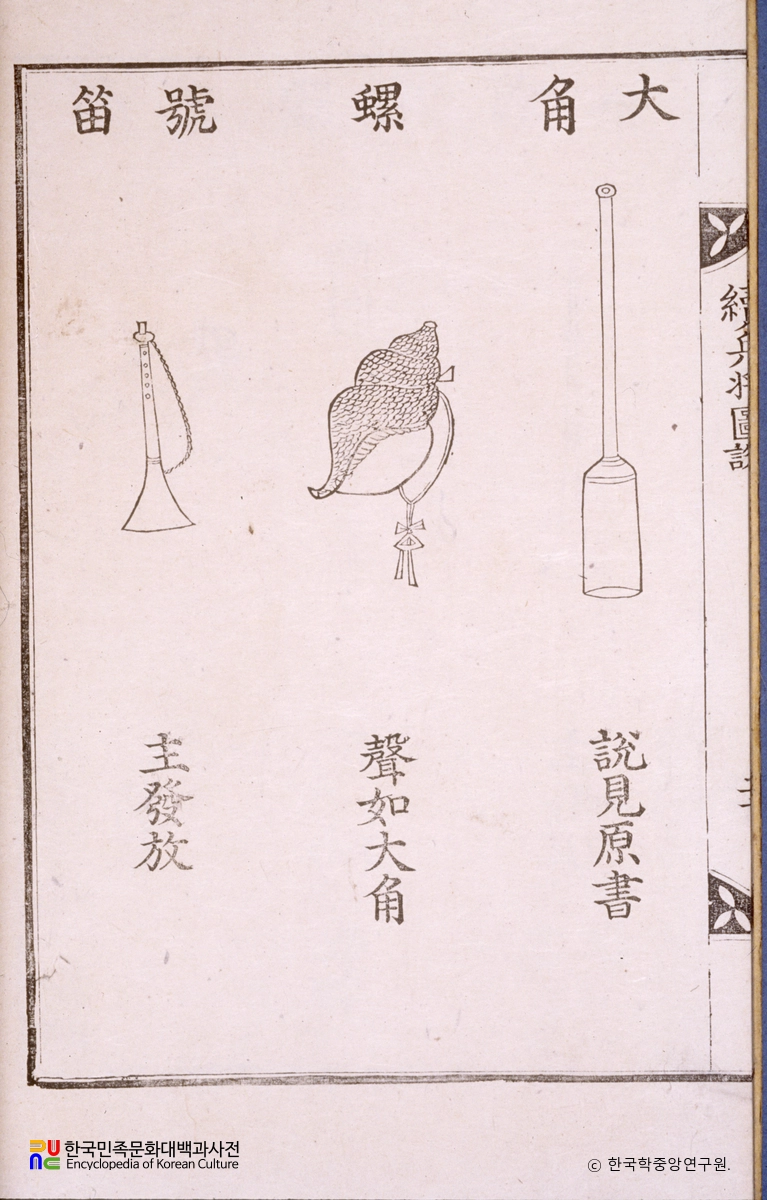 大角
螺
號笛
說見原書
聲如大角
主發放
續兵將圖說
한국민족문화대백과사전
Encyclopedia of Korean Culture
© 한국학중앙연구원.